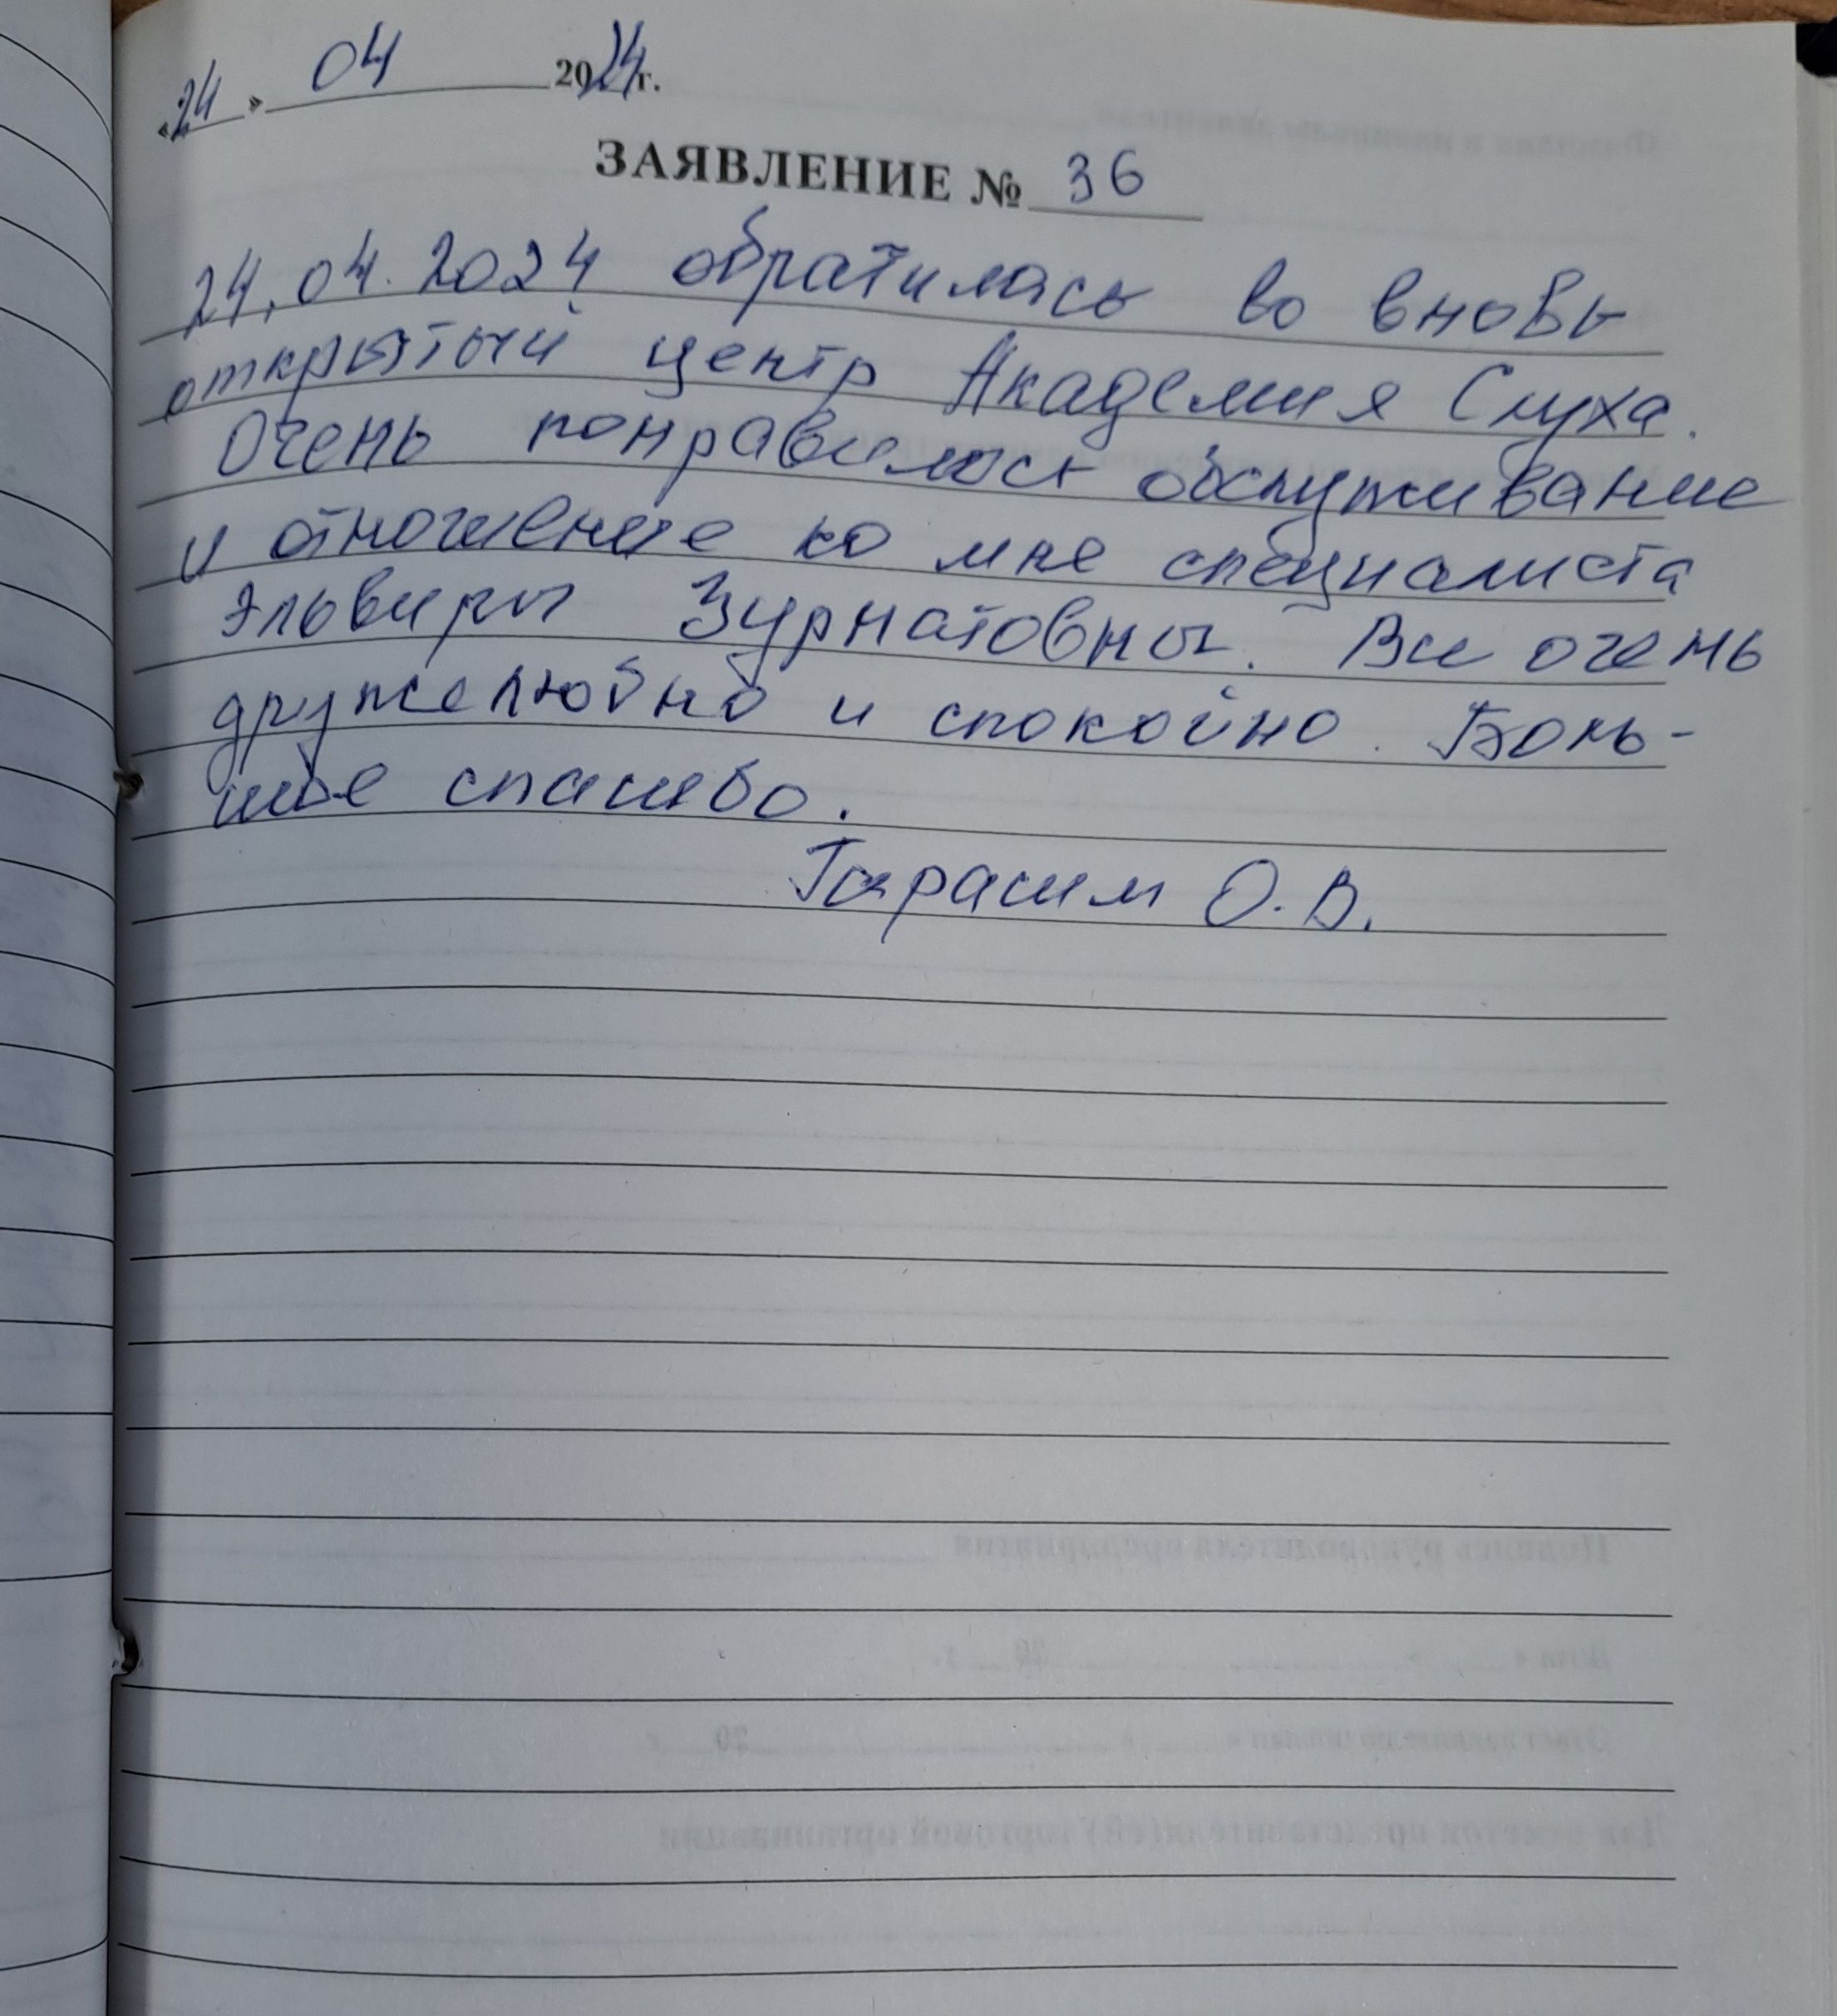 «24» 04 2024г.
ЗАЯВЛЕНИЕ № 36
24.04.2024 обратилась во вновь
открытый центр Академия Слуха.
Очень понравилось обслуживание
и отношение ко мне специалиста
Эльвиры Зурнатовны. Все очень
дружелюбно и спокойно. Боль-
шое спасибо.
Гарасим О.В.